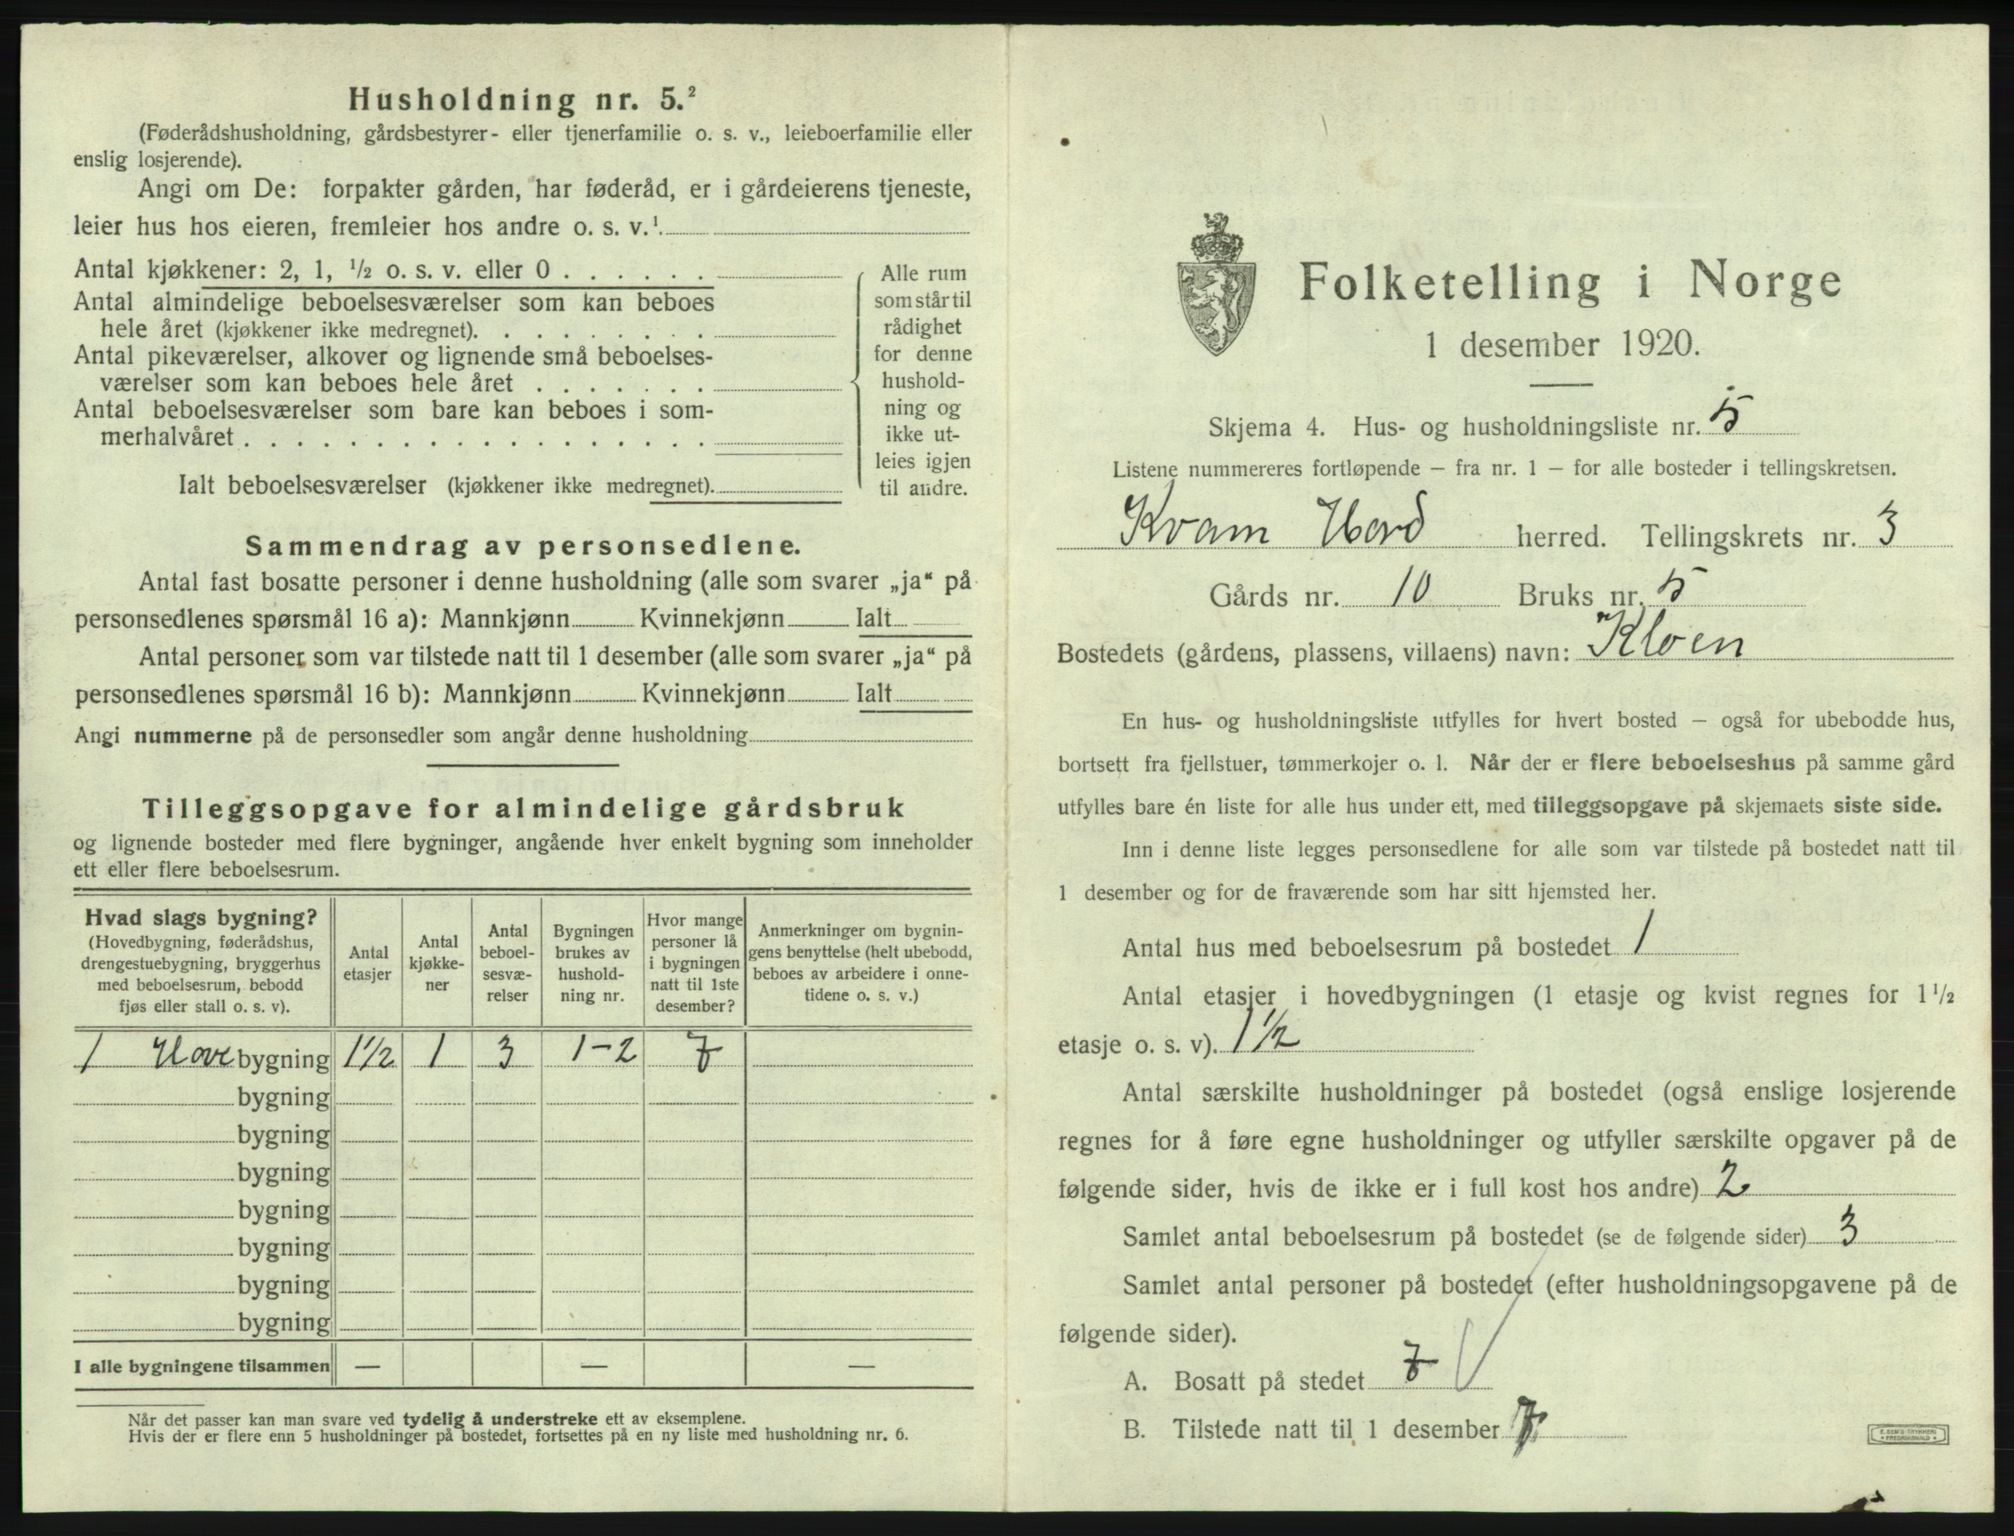 Husholdning nr. 5.²
(Føderådshusholdning, gårdsbestyrer- eller tjenerfamilie o. s. v., leieboerfamilie eller
enslig losjerende).
Angi om De: forpakter gården, har føderåd, er i gårdeierens tjeneste,
leier hus hos eieren, fremleier hos andre o. s. v.¹
Antal kjøkkener: 2, 1, ½ o. s. v. eller 0 . . . . . .
Antal almindelige beboelsesværelser som kan beboes
hele året (kjøkkener ikke medregnet). . . . . . . .
Antal pikeværelser, alkover og lignende små beboelses-
værelser som kan beboes hele året . . . . . . .
Antal beboelsesværelser som bare kan beboes i som-
merhalvåret . . . . . . . . . . . . . . . . . .
Ialt beboelsesværelser (kjøkkener ikke medregnet).
Alle rum
som står til
rådighet
for denne
hushold-
ning og
ikke ut-
leies igjen
til andre.
Sammendrag av personsedlene.
Antal fast bosatte personer i denne husholdning (alle som svarer „ja“ på
personsedlenes spørsmål 16 a): Mannkjønn Kvinnekjønn Ialt
Antal personer som var tilstede natt til 1 desember (alle som svarer „ja“ på
personsedlenes spørsmål 16 b): Mannkjønn Kvinnekjønn Ialt
Angi nummerne på de personsedler som angår denne husholdning
Tilleggsopgave for almindelige gårdsbruk
og lignende bosteder med flere bygninger, angående hver enkelt bygning som inneholder
ett eller flere beboelsesrum.
Hvad slags bygning?
(Hovedbygning, føderådshus,
drengestuebygning, bryggerhus
med beboelsesrum, bebodd
fjøs eller stall o. s. v).
Antal
etasjer
Antal
kjøkke-
ner
Antal
beboel-
sesvæ-
relser
Bygningen
brukes av
hushold-
ning nr.
Hvor mange
personer lå
i bygningen
natt til 1ste
desember?
Anmerkninger om bygnin-
gens benyttelse (helt ubebodd,
beboes av arbeidere i onne-
tidene o. s. v.)
1 Hove bygning 1½ 1 3 1-2 7
bygning
bygning
bygning
bygning
bygning
bygning
bygning
I alle bygningene tilsammen — — —
Når det passer kan man svare ved tydelig å understreke ett av eksemplene.
Hvis der er flere enn 5 husholdninger på bostedet, fortsettes på en ny liste med husholdning nr. 6.
Folketelling i Norge
1 desember 1920.
Skjema 4. Hus- og husholdningsliste nr. 5
Listene nummereres fortløpende – fra nr. 1 – for alle bosteder i tellingskretsen.
Kvam Hord herred. Tellingskrets nr. 3
Gårds nr. 10 Bruks nr. 5
Bostedets (gårdens, plassens, villaens) navn: Kloen
En hus- og husholdningsliste utfylles for hvert bosted – også for ubebodde hus,
bortsett fra fjellstuer, tømmerkojer o. l. Når der er flere beboelseshus på samme gård
utfylles bare én liste for alle hus under ett, med tilleggsopgave på skjemaets siste side.
Inn i denne liste legges personsedlene for alle som var tilstede på bostedet natt til
1 desember og for de fraværende som har sitt hjemsted her.
Antal hus med beboelsesrum på bostedet 1
Antal etasjer i hovedbygningen (1 etasje og kvist regnes for 1½
etasje o. s. v). 1½
Antal særskilte husholdninger på bostedet (også enslige losjerende
regnes for å føre egne husholdninger og utfyller særskilte opgaver på de
følgende sider, hvis de ikke er i full kost hos andre) 2
Samlet antal beboelsesrum på bostedet (se de følgende sider) 3
Samlet antal personer på bostedet (efter husholdningsopgavene på de
følgende sider).
A. Bosatt på stedet 7
B. Tilstede natt til 1 desember 7